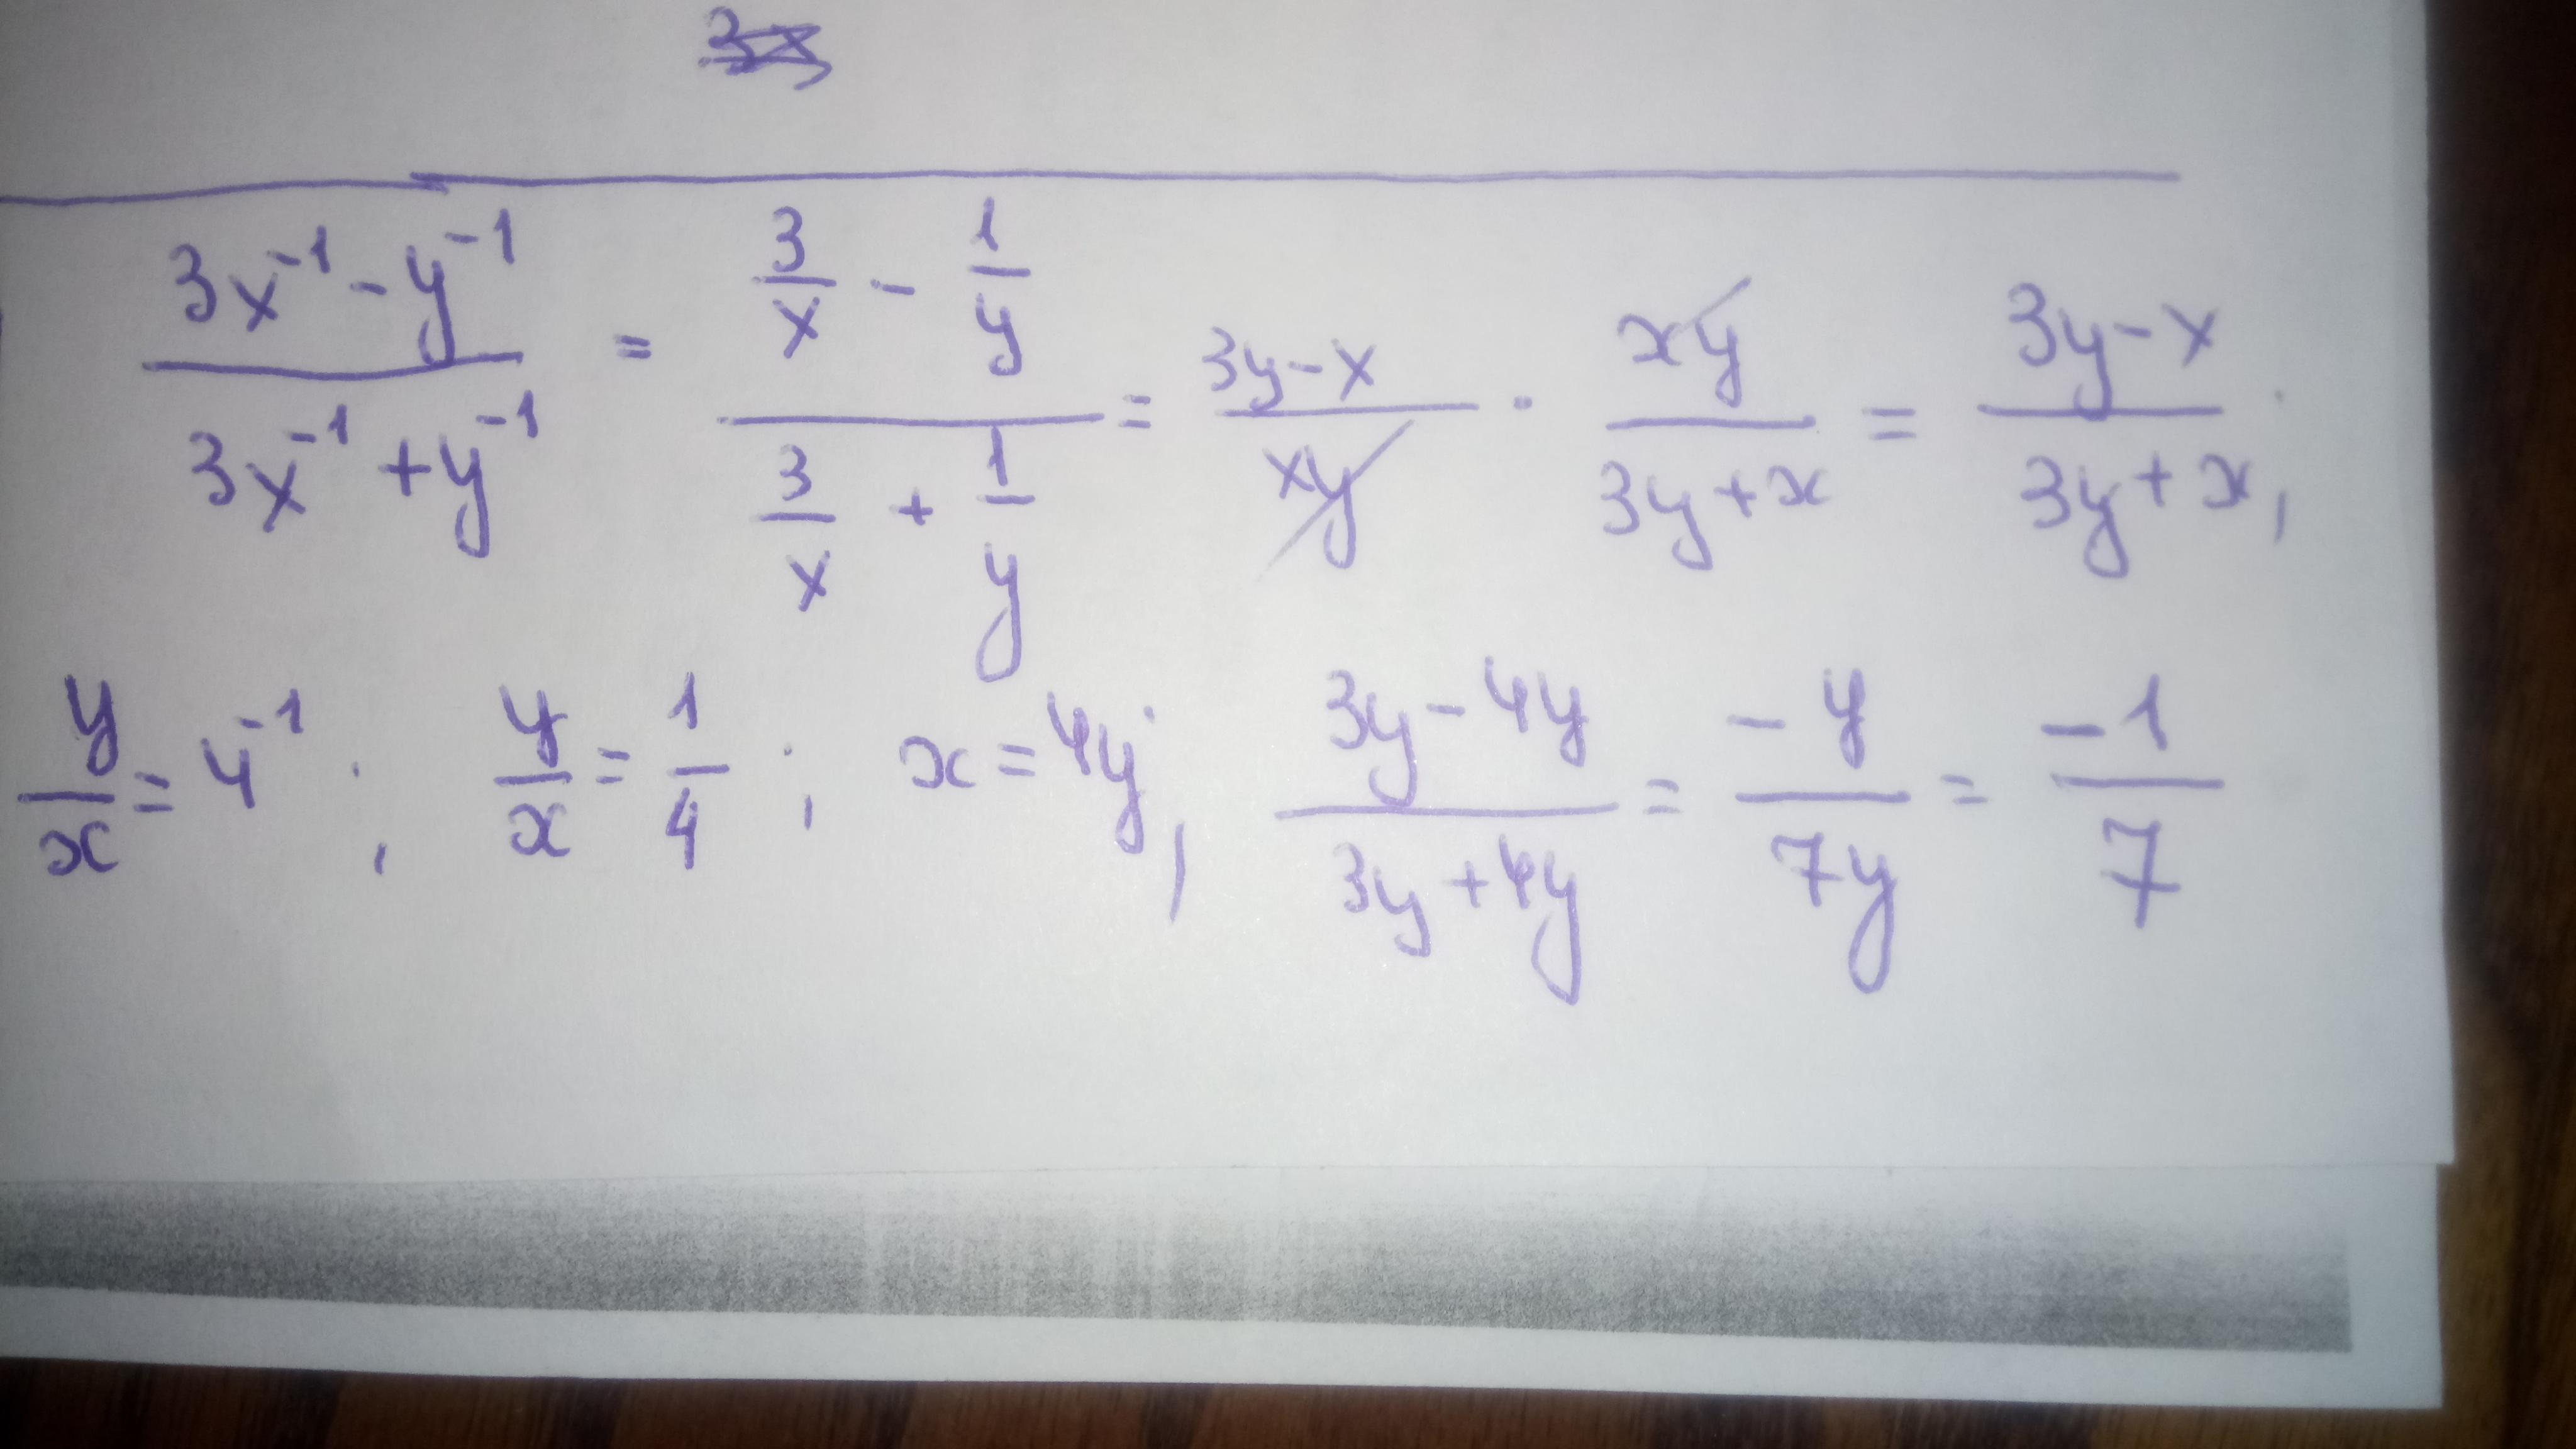 (3x⁻¹ - y⁻¹)/(3x⁻¹ + y⁻¹) = (3/x - 1/y)/(3/x + 1/y) = (3y - x)/(xy) · (xy)/(3y + x) = (3y - x)/(3y + x);
y/x = 4⁻¹; y/x = 1/4; x = 4y; (3y - 4y)/(3y + 4y) = (-y)/(7y) = (-1)/7